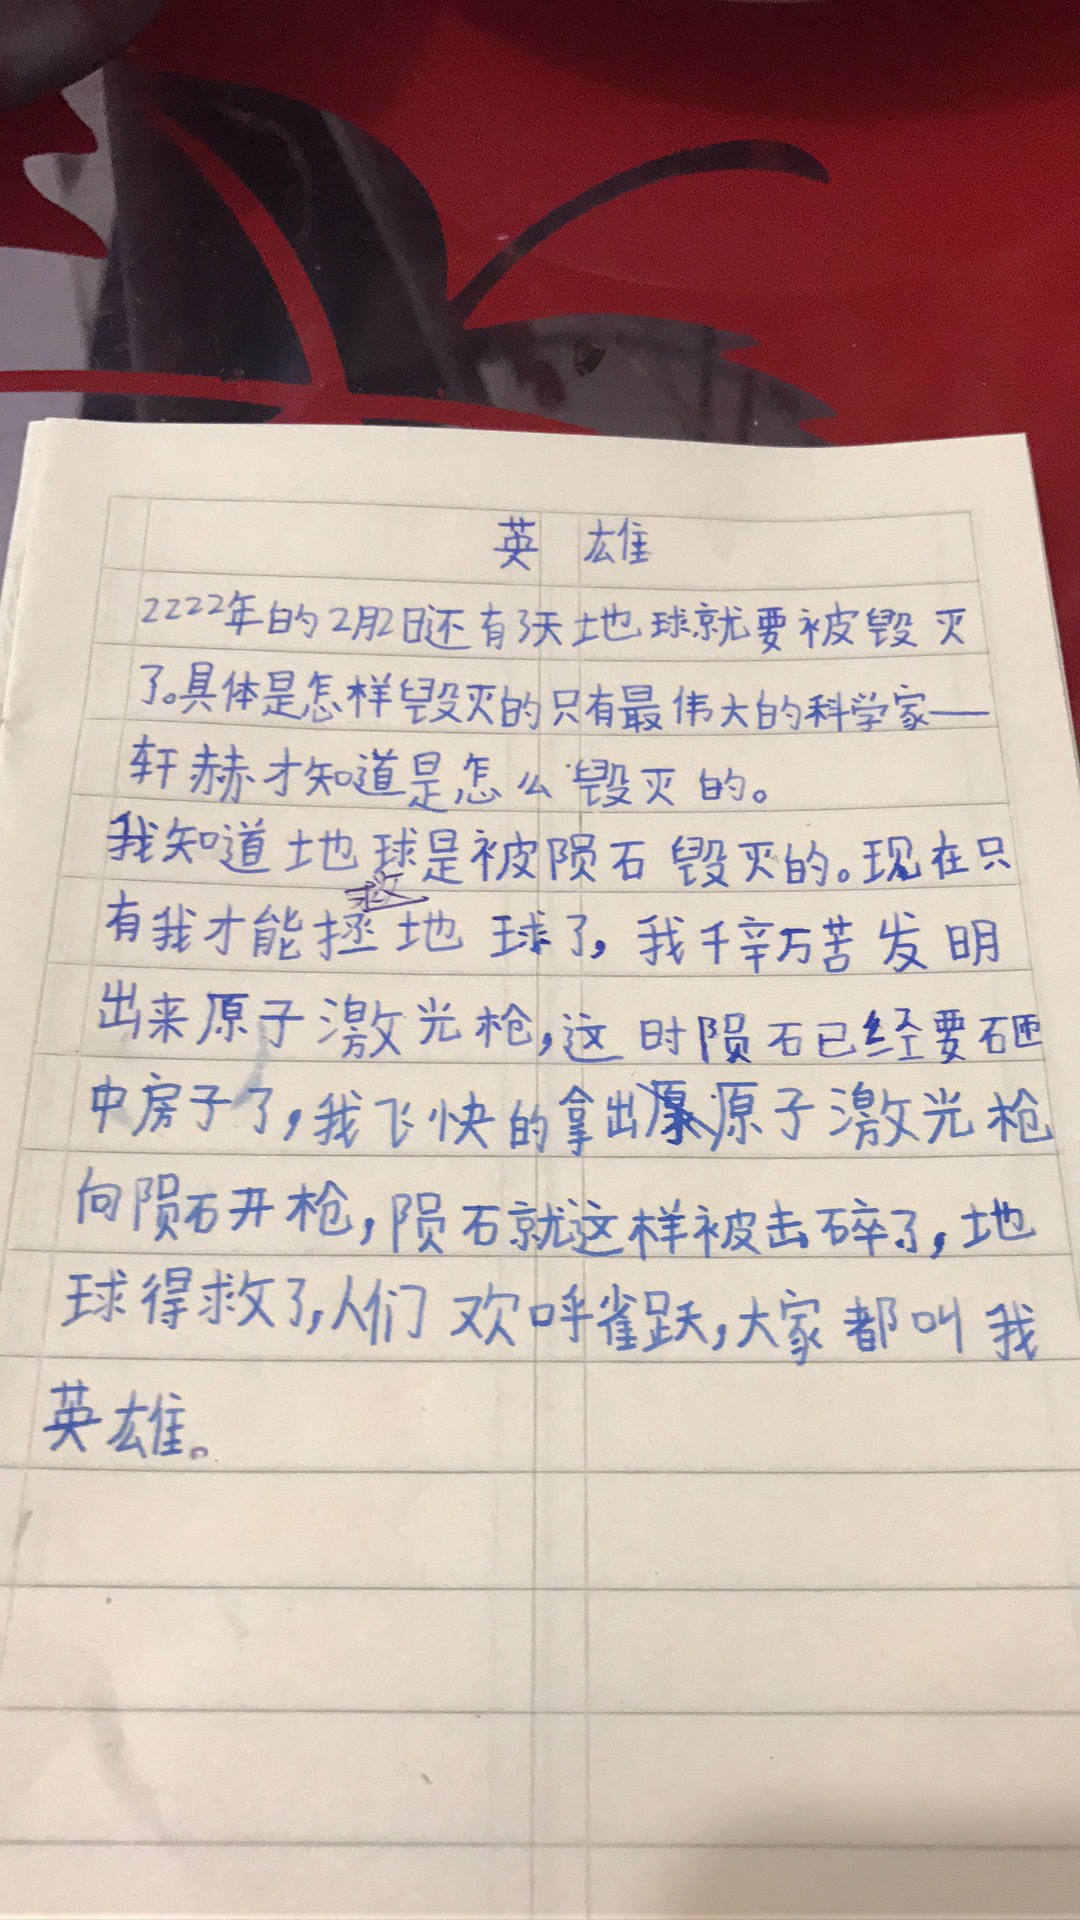 英 雄
2222年的2月2日还有3天地球就要被毁灭
了。具体是怎样毁灭的只有最伟大的科学家——
轩赫才知道是怎么毁灭的。
我知道地球是被陨石毁灭的。现在只
有我才能拯救地球了，我千辛万苦发明
出来原子激光枪，这时陨石已经要砸
中房子了，我飞快的拿出原子激光枪
向陨石开枪，陨石就这样被击碎了，地
球得救了，人们欢呼雀跃，大家都叫我
英雄。